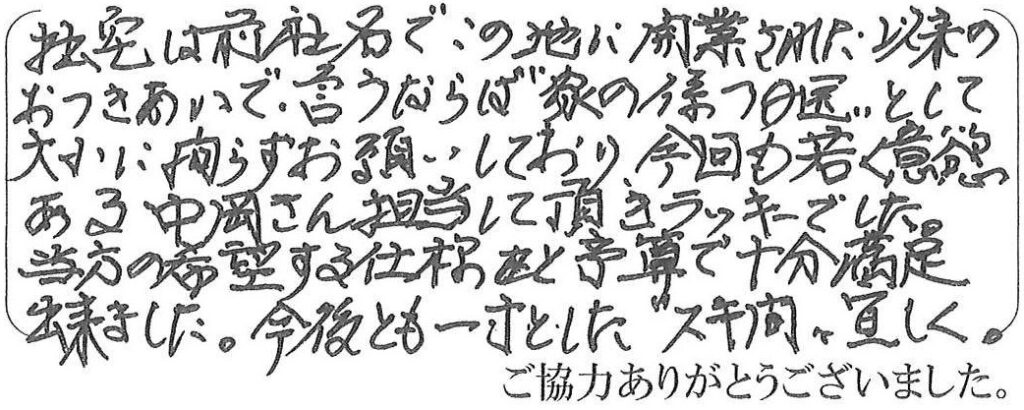 拙宅は前社名でこの地に開業された以来の
おつきあいで言うならば"家の保つ口医"として
大小に拘らずお願いしており今回も若く意欲
ある中岡さん担当して頂きラッキーでした。
当方の希望する仕様と予算で十分満足
出来ました。今後とも一寸とした"スキ間"宜しく。
ご協力ありがとうございました。